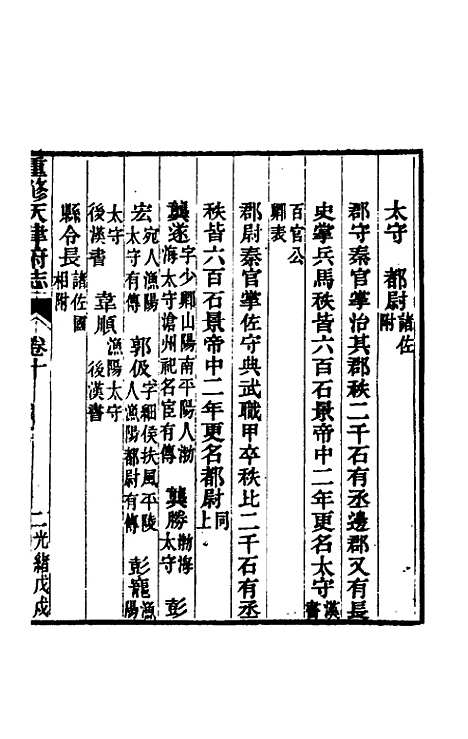 太守　都尉諸佐附
郡守秦官掌治其郡秩二千石有丞邊郡又有長
史掌兵馬秩皆六百石景帝中二年更名太守漢書
百官公卿表
郡尉秦官掌佐守典武職甲卒秩比二千石有丞
秩皆六百石景帝中二年更名都尉同上
龔遂字少卿山陽南平陽人渤海太守滄州祀名宦有傳　龔勝渤海太守　彭
宏宛人漁陽太守有傳　郭伋字細侯扶風平陵人漁陽都尉有傳　彭寵漁陽
太守後漢書　韋順漁陽太守後漢書
縣令長諸佐國相附
重修天津府志　卷十　二　光緒戊戌